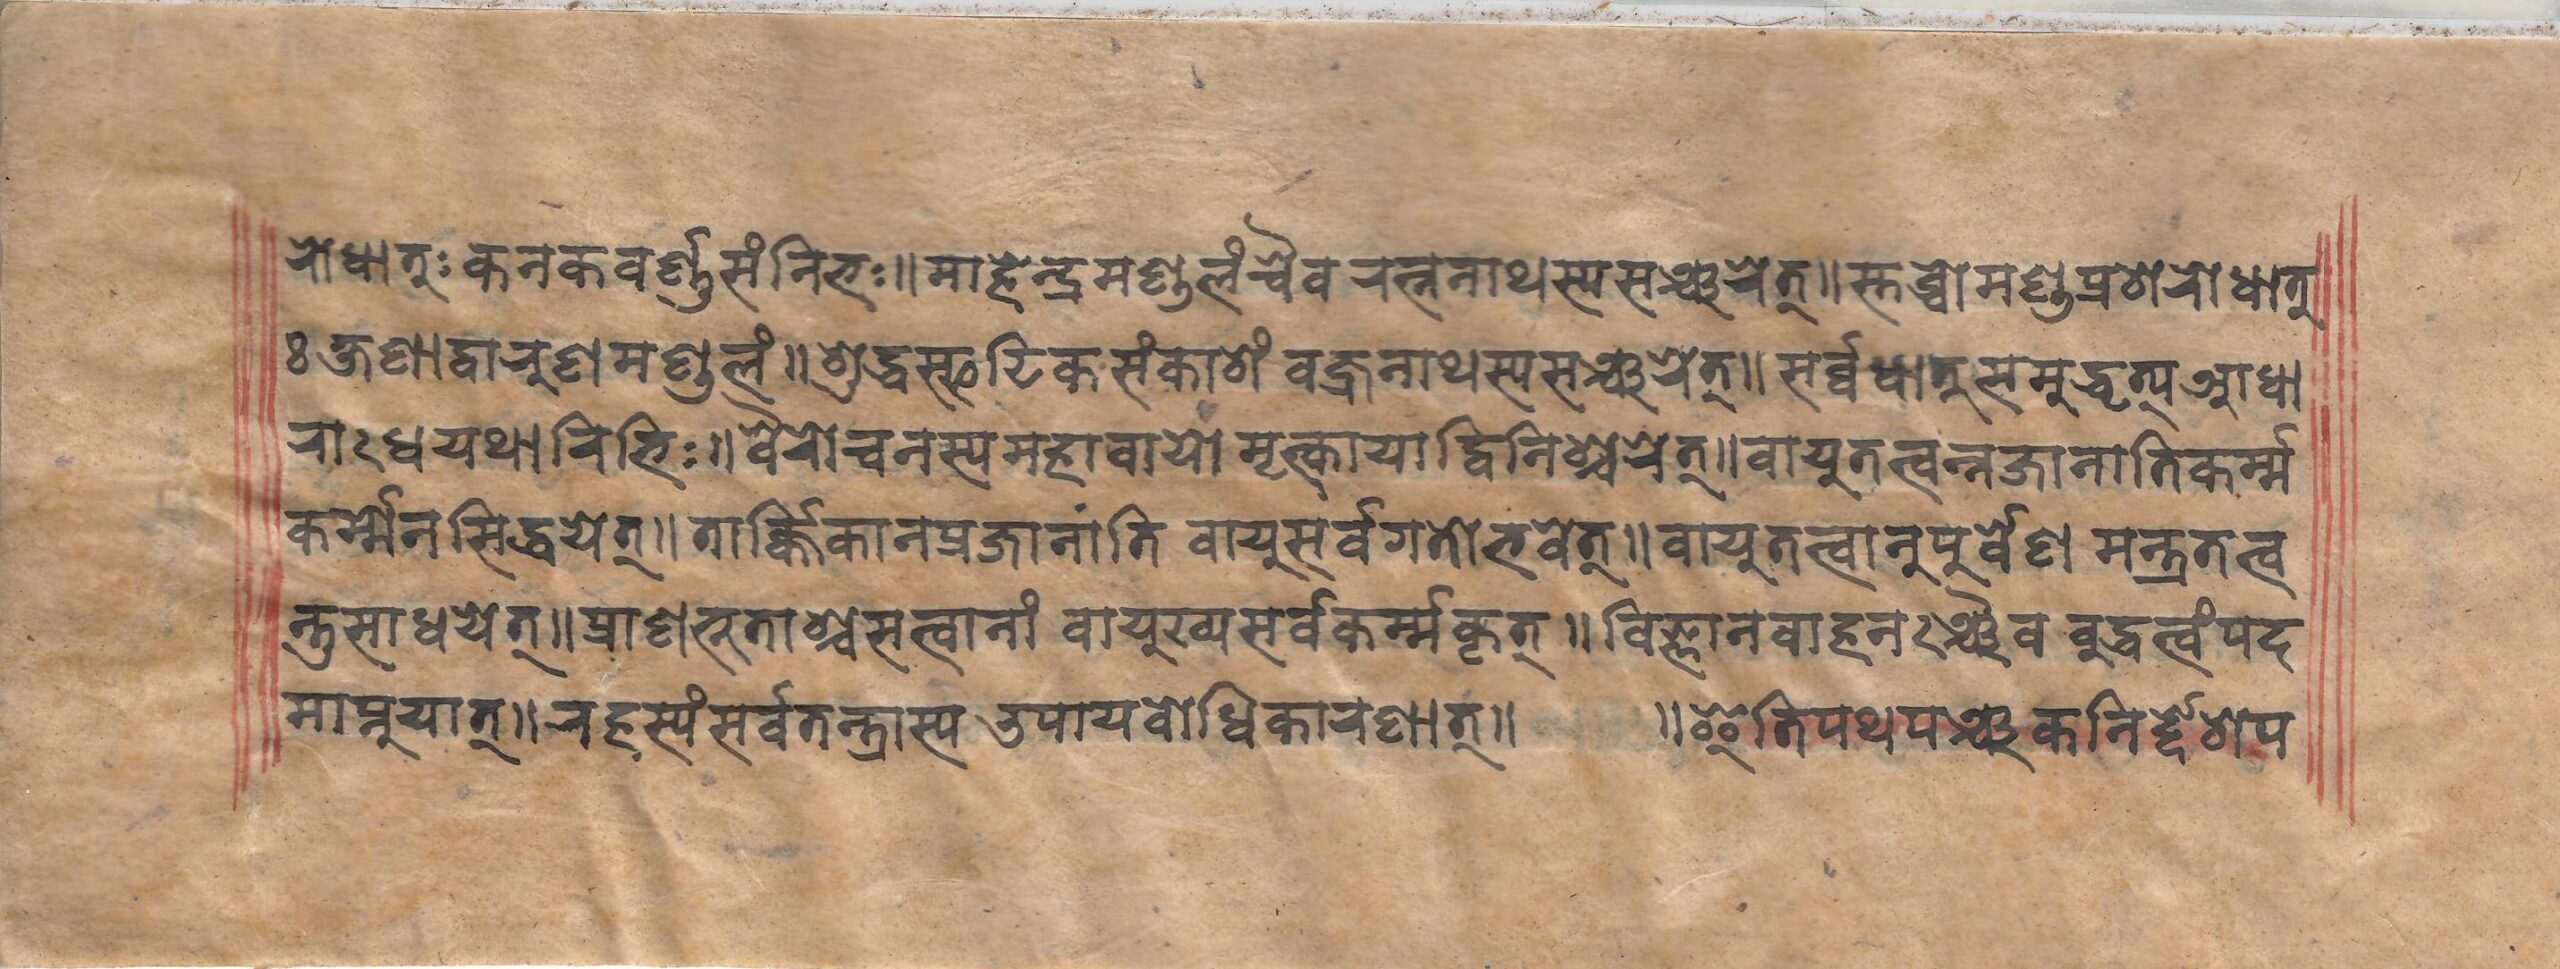 रोधातुः कनकवर्ण्णसंनिभः॥माहेन्द्रमण्डलंचैव रत्ननाथस्यसञ्चरेत्॥स्तब्धोमण्डप्रशेरोधातु
ः ज्रणाद्वारुणमण्डलं॥शुद्धस्फटिकसंकाशं वज्रनाथस्यसञ्चरेत्॥सर्व्वधातुसमुद्धृत्य आधा
राःधयथारिभिः॥वैरोचनस्यमहावायो मृत्कायाद्विनिश्चरेत्॥वायुतत्वन्नजानातिकर्म्म
कर्म्मेनसिद्धयेत्॥तार्क्किकानप्रजानांति वायुसर्वगतोभवेत्॥वायुतत्वानुपुर्वेण मन्त्रतत्व
न्तुसाधयेत्॥प्राणभूताश्चसत्वानां वायुरव्यसर्वकर्म्मकृत्॥विज्ञानवाहनःञ्चैव बुद्धत्वंपद
माप्नुयात्॥रहस्यंसर्वतन्त्रास्य उपायबोधिकारणात्॥ ॥इतिपथपञ्चकनिर्द्देशेप